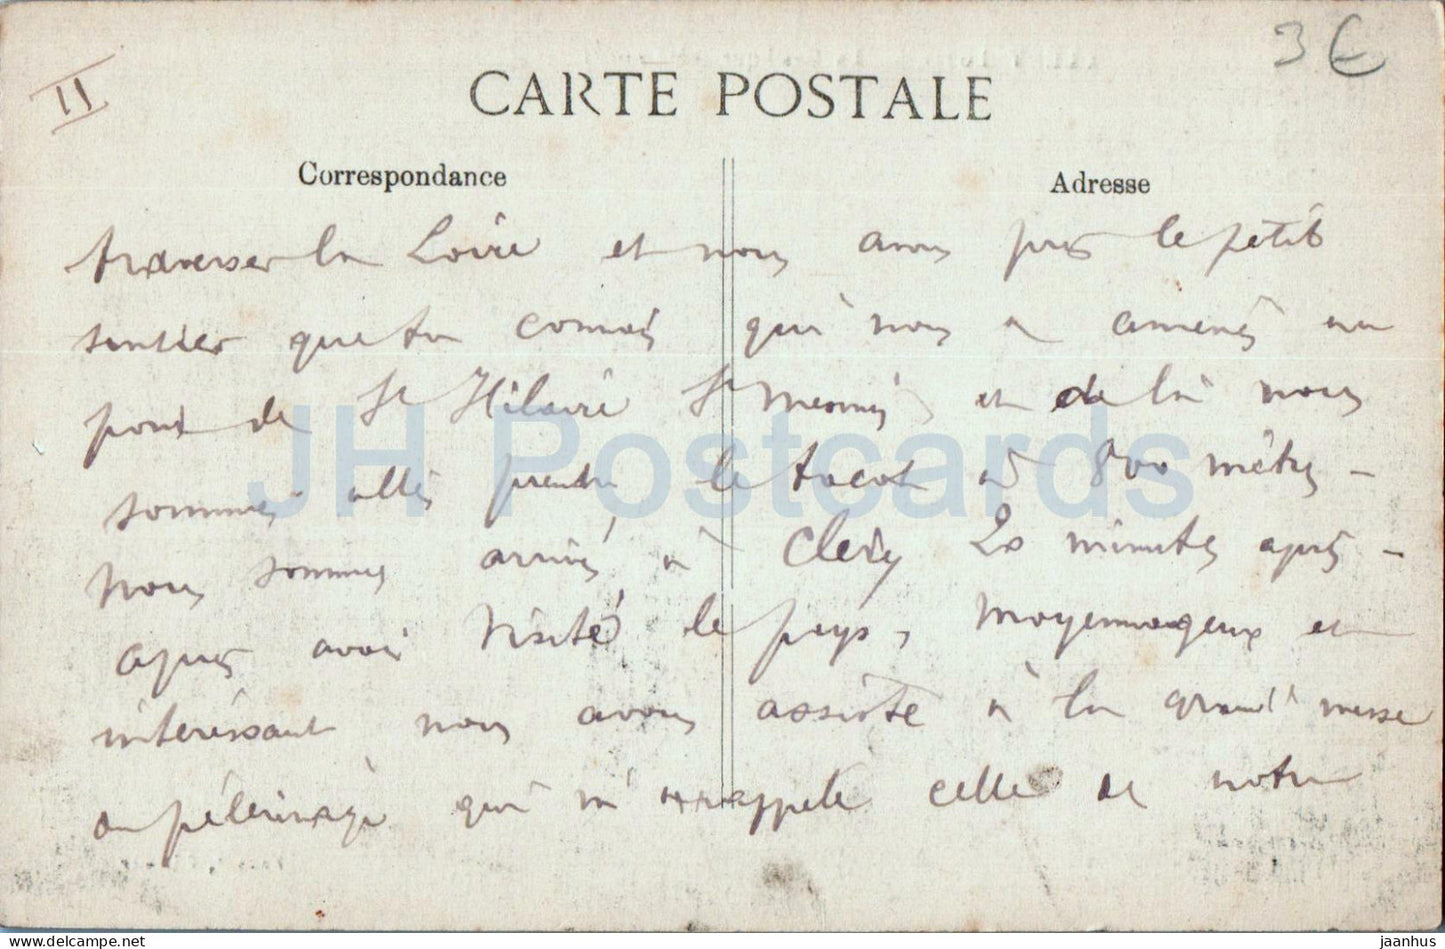 II
3 €
CARTE POSTALE
Correspondance
Adresse
traverser la Loire et nous avons pris le petit
sentier que tu connais qui nous a amenés au
pont de St Hilaire St Mesmin et de là nous
sommes allés prendre le tacot à 800 mètres –
Nous sommes arrivés à Clery 20 minutes après –
après avoir visité le pays, moyennageux et
intéressant nous avons assisté à la grand' messe
du pélerinage qui m' rappele celle de notre
JH Postcards
www.delcampe.net
jaanhus